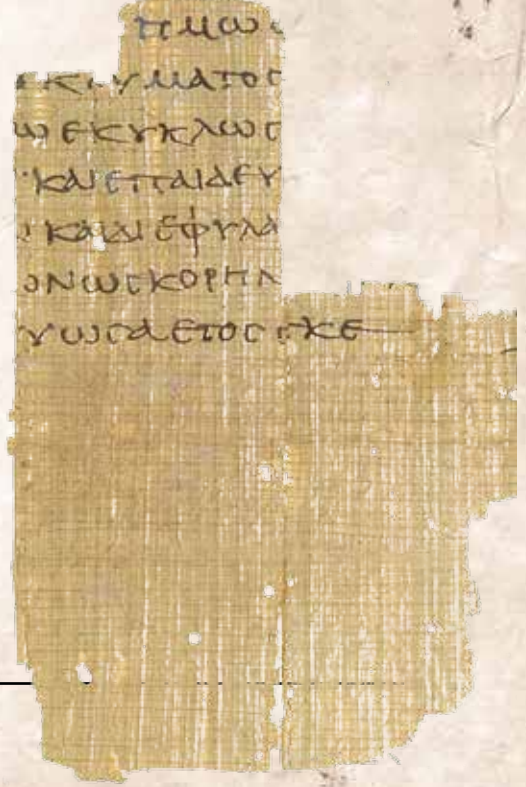 ΗΜΩ
ΚΑΥΜΑΤΟϹ
Ω ΕΚΥΚΛΩϹ
ΚΑΙ ΕΠΑΙΔΕΥ
ΚΑΙ ΔΙΕΦΥΛΑ
ΟΝ ΩϹ ΚΟΡΗΝ
Υ ΩϹ ΑΕΤΟϹ ϹΚΕ